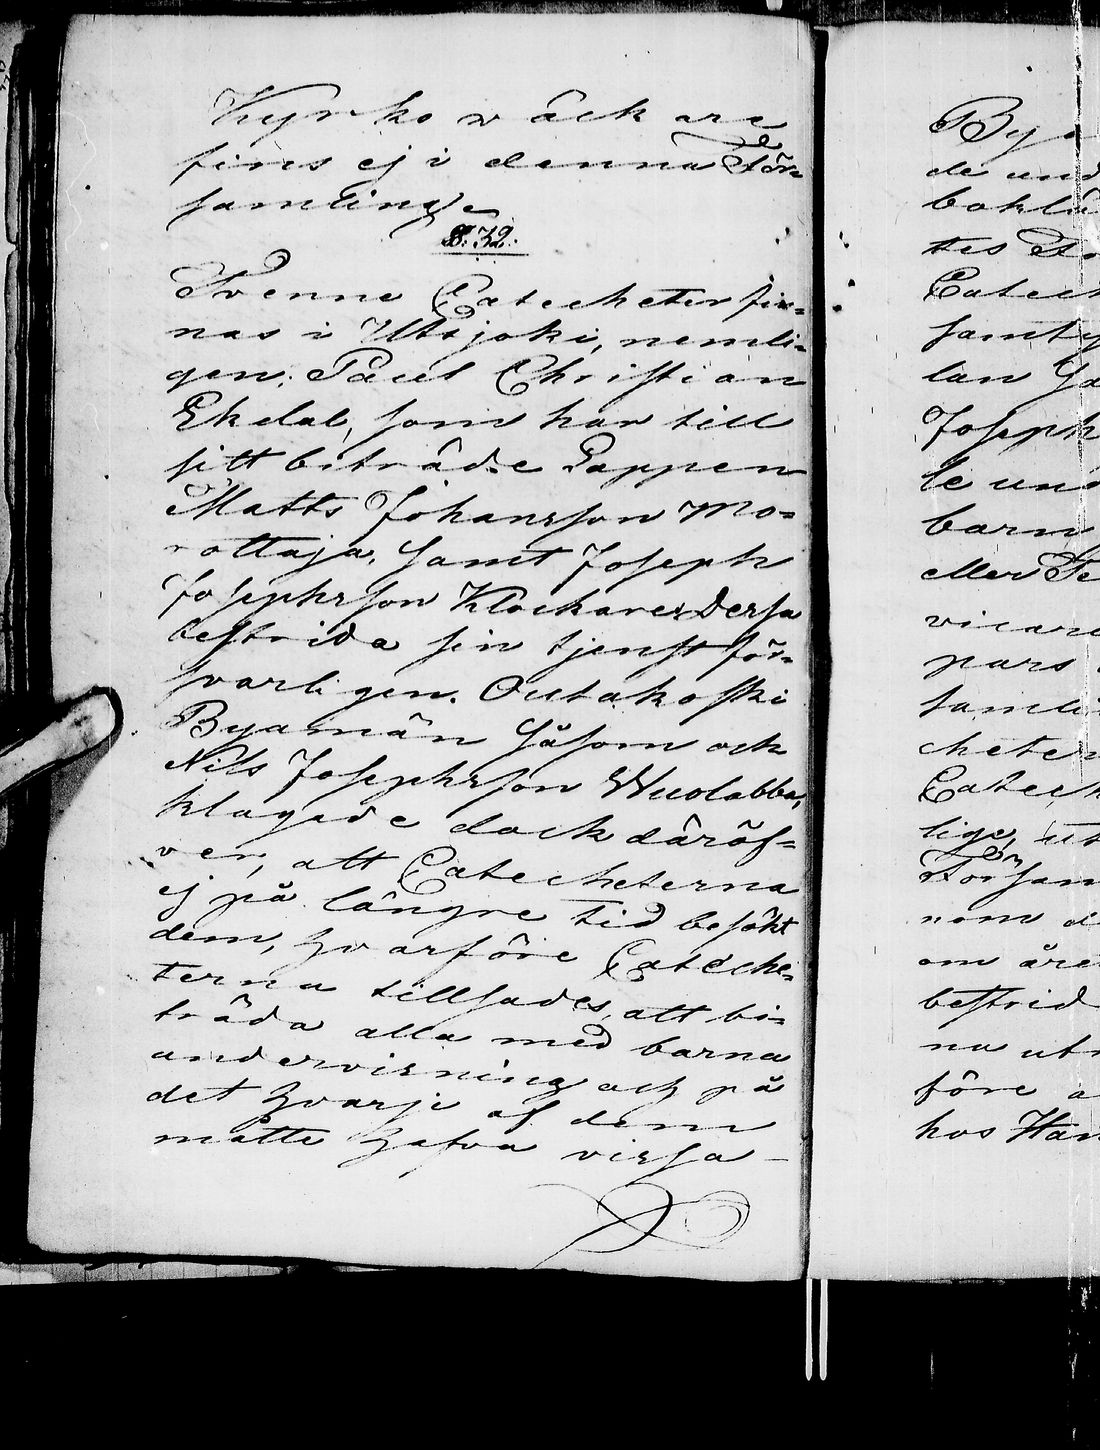 Kyrkowäckare
fins ej i denna För=
samling.
§: 32.
Tvenne Catecheter fin=
nas i Utsjoki, nemli=
gen: Paul Christian
Ekdal, som har till
sitt biträde Lappen
Matts Johansson Mo=
rottaja, samt Joseph
Josephsson Klockare. Dessa
bestrida sin tjenst för=
svarligen. Outakoski
Byamän såsom ock
Nils Josephsson Wuolabba,
klagade dock däröf=
ver, att Catecheterna
ej på längre tid besökt
dem, hvarföre Cateche=
terna tillsades, att bi=
träda alla med barna
undervisning och på
det hvarje af dem
måtte hafva vissa
By
de und
boklä
tes Fö
Catech
samty
lan
Joseph
le und
barn
eller
vicare
pars
samli
cheter
Catech
lige, ut
Församl
nom d
om åre
bestrid
na utr
före a
hos Han